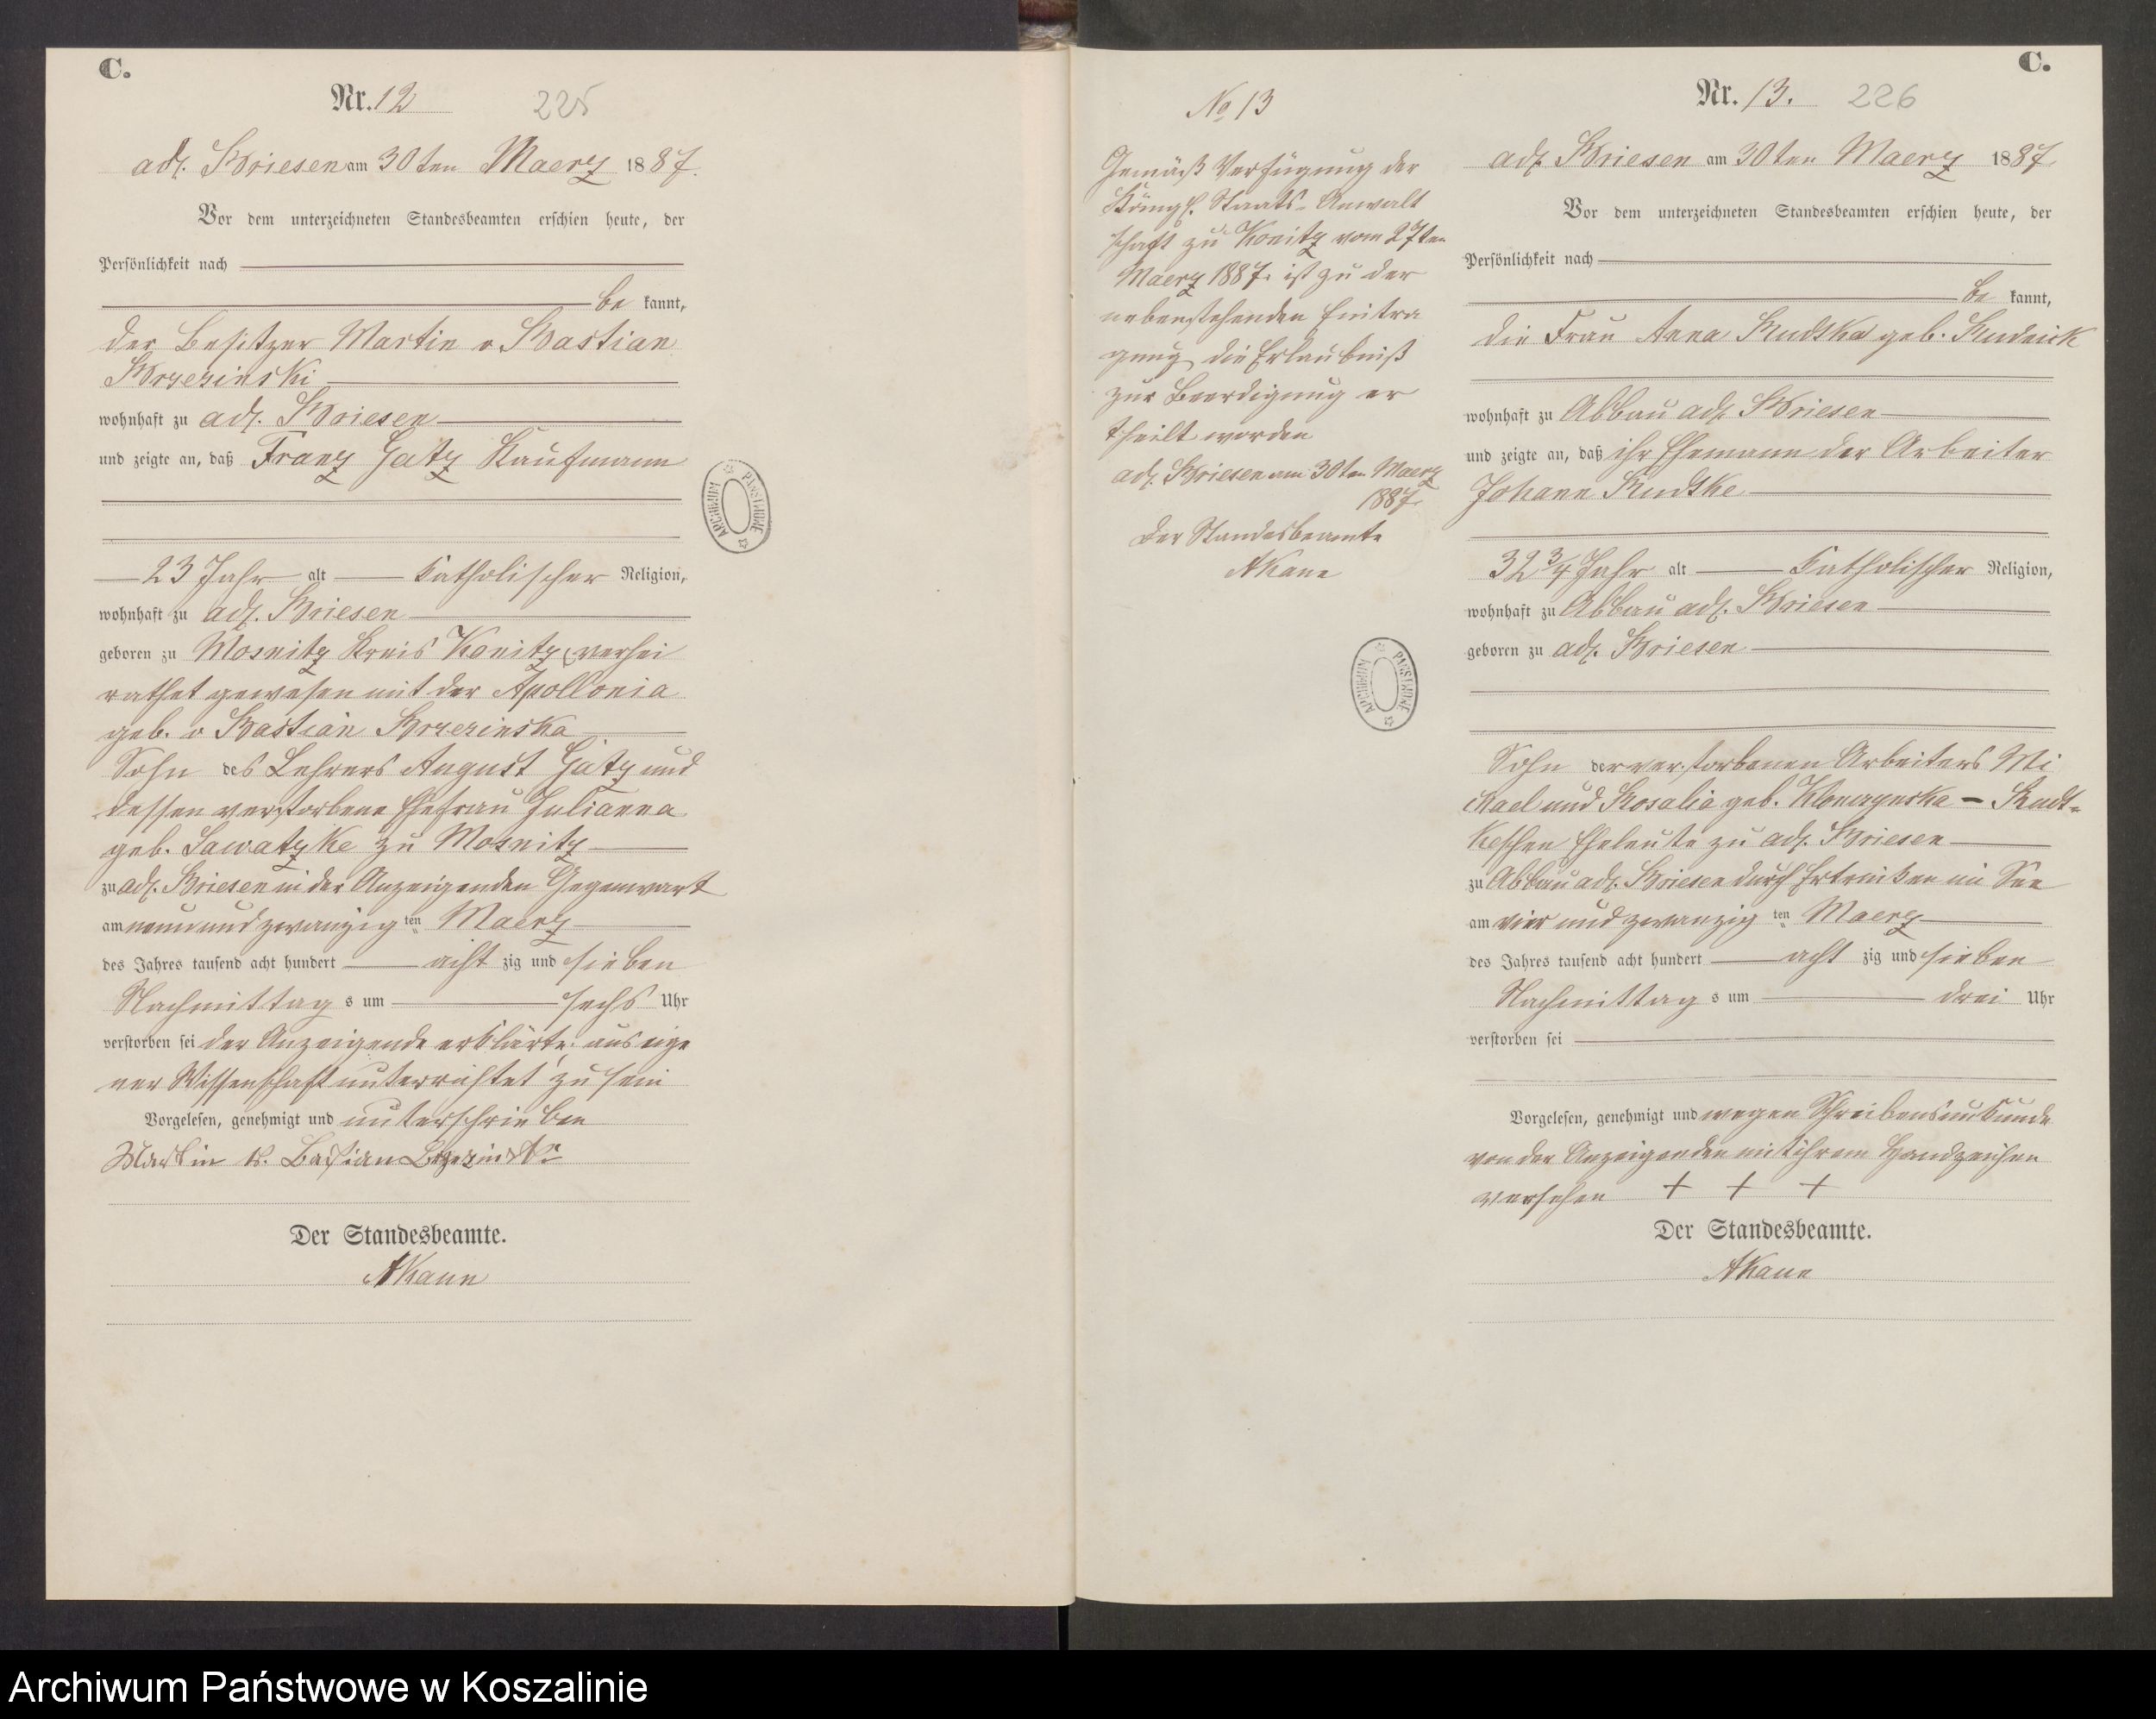 C.
Nr. 12
225
adl. Briesen am 30ten Maerz 1887.
Vor dem unterzeichneten Standesbeamten erschien heute, der
Persönlichkeit nach
be kannt,
der Besitzer Martin v Bastian
Brzezinski
wohnhaft zu adl. Briesen
und zeigte an, daß Franz Gatz Kaufmann
23 Jahr alt katholischer Religion,
wohnhaft zu adl. Briesen
geboren zu Mosnitz Kreis Konitz, verhei
rathet gewesen mit der Apollonia
geb. v Bastian Brzezinska
Sohn des Lehrers August Gatz und
dessen verstorbene Ehefrau Julianna
geb. Sawatzke zu Mosnitz
zu adl. Briesen in des Anzeigenden Gegenwart
am neun und zwanzig ten Maerz
des Jahres tausend acht hundert acht zig und sieben
Nachmittag s um sechs Uhr
verstorben sei der Anzeigende erklärte, aus eige
ner Wissenschaft unterrichtet zu sein
Vorgelesen, genehmigt und unterschrieben
Martin v. Bastian Brzezinski
Der Standesbeamte.
AKann
ARCHIWUM PAŃSTWOWE
No 13
Gemäß Verfügung der
Königl. Staats-Anwalt
schaft zu Konitz vom 27ten
Maerz 1887. ist zu der
nebenstehenden Eintra
gung die Erlaubniß
zur Beerdigung er
theilt worden
adl. Briesen am 30ten Maerz
1887.
Der Standesbeamte
AKann
ARCHIWUM PAŃSTWOWE
C.
Nr. 13.
226
adl. Briesen am 30ten Maerz 1887
Vor dem unterzeichneten Standesbeamten erschien heute, der
Persönlichkeit nach
be kannt,
die Frau Anna Rudtka geb. Rudnick
wohnhaft zu Abbau adl. Briesen
und zeigte an, daß ihr Ehemann der Arbeiter
Johann Rudtke
32 3/4 Jahr alt katholischer Religion,
wohnhaft zu Abbau adl. Briesen
geboren zu adl. Briesen
Sohn der verstorbenen Arbeiters Mi
chael und Rosalia geb. - Rudt-
keschen Eheleute zu adl. Briesen
zu Abbau adl. Briesen durch Ertrinken im See
am vier und zwanzig ten Maerz
des Jahres tausend acht hundert acht zig und sieben
Nachmittag s um drei Uhr
verstorben sei
Vorgelesen, genehmigt und wegen Schreibensunkunde
von der Anzeigenden mit ihrem Handzeichen
versehen + + +
Der Standesbeamte.
AKann
Archiwum Państwowe w Koszalinie